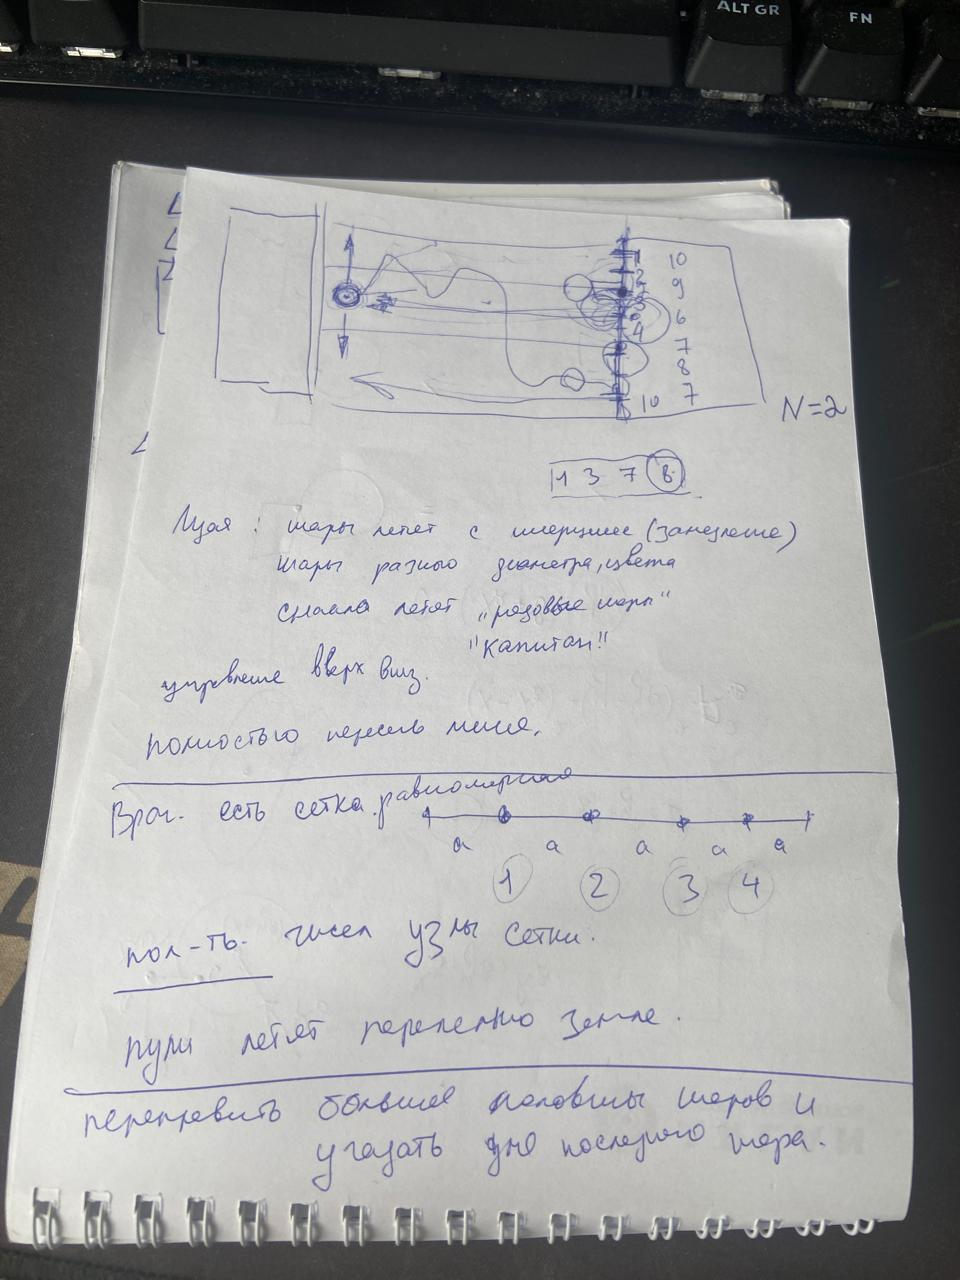 ALT GR
FN
1 10
2 9
3 6
4 7
8
10 7
N=2
1 3 7 8
Идая : шары летят с инерцией (занезление)
шары разного диаметра, цвета
сначала летят "рядовые шары"
"Капитан"
управление вверх вниз.
полностью пересечь линия.
Враг. есть сетка равномерная
a a a a a
1 2 3 4
пол-ть. чисел узлы сетки.
пули летят паралельно земле.
переправить больше половины шаров и
угадать дно последнего шара.